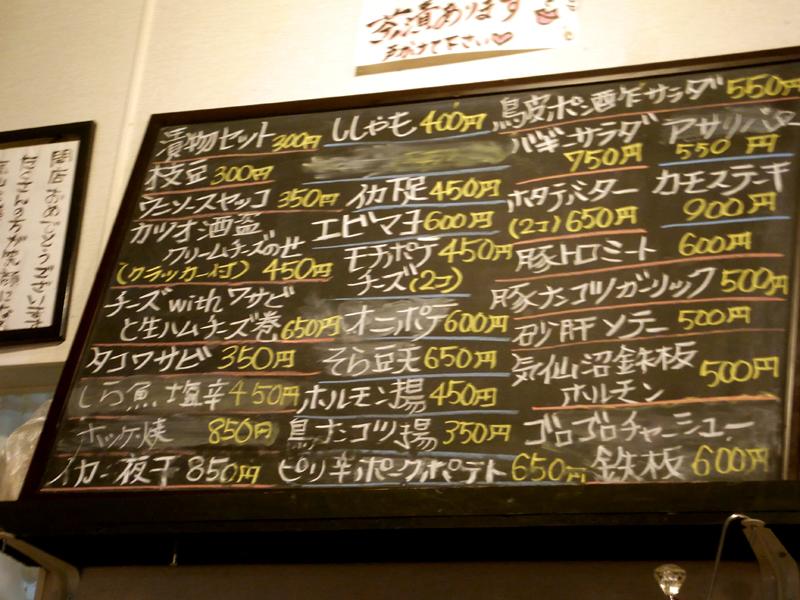 茶漬あります
声かけて下さい
漬物セット 300円
枝豆 300円
ウニソースヤッコ 350円
カツオ酒盗
クリームチーズのせ
(クラッカー付) 450円
チーズwithワサビ
と生ハムチーズ巻 650円
タコワサビ 350円
しら魚塩辛 450円
ホッケ焼 850円
イカ一夜干 850円
ししゃも 400円
イカ下足 450円
エビマヨ 600円
モチポテ 450円
チーズ(2コ)
オニポテ 600円
そら豆天 650円
ホルモン揚 450円
鳥ナンコツ揚 350円
ピリ辛ポークポテト 650円
鳥皮ポン酢サラダ 550円
バギーサラダ
750円
アサリバター
550円
ホタテバター
(2コ) 650円
カモステーキ
900円
豚トロミート 600円
豚ナンコツガーリック 500円
砂肝ソテー 500円
気仙沼鉄板
ホルモン 500円
ゴロゴロチャーシュー
鉄板 600円
開店おめでとうございます
たくさんの方が笑顔に